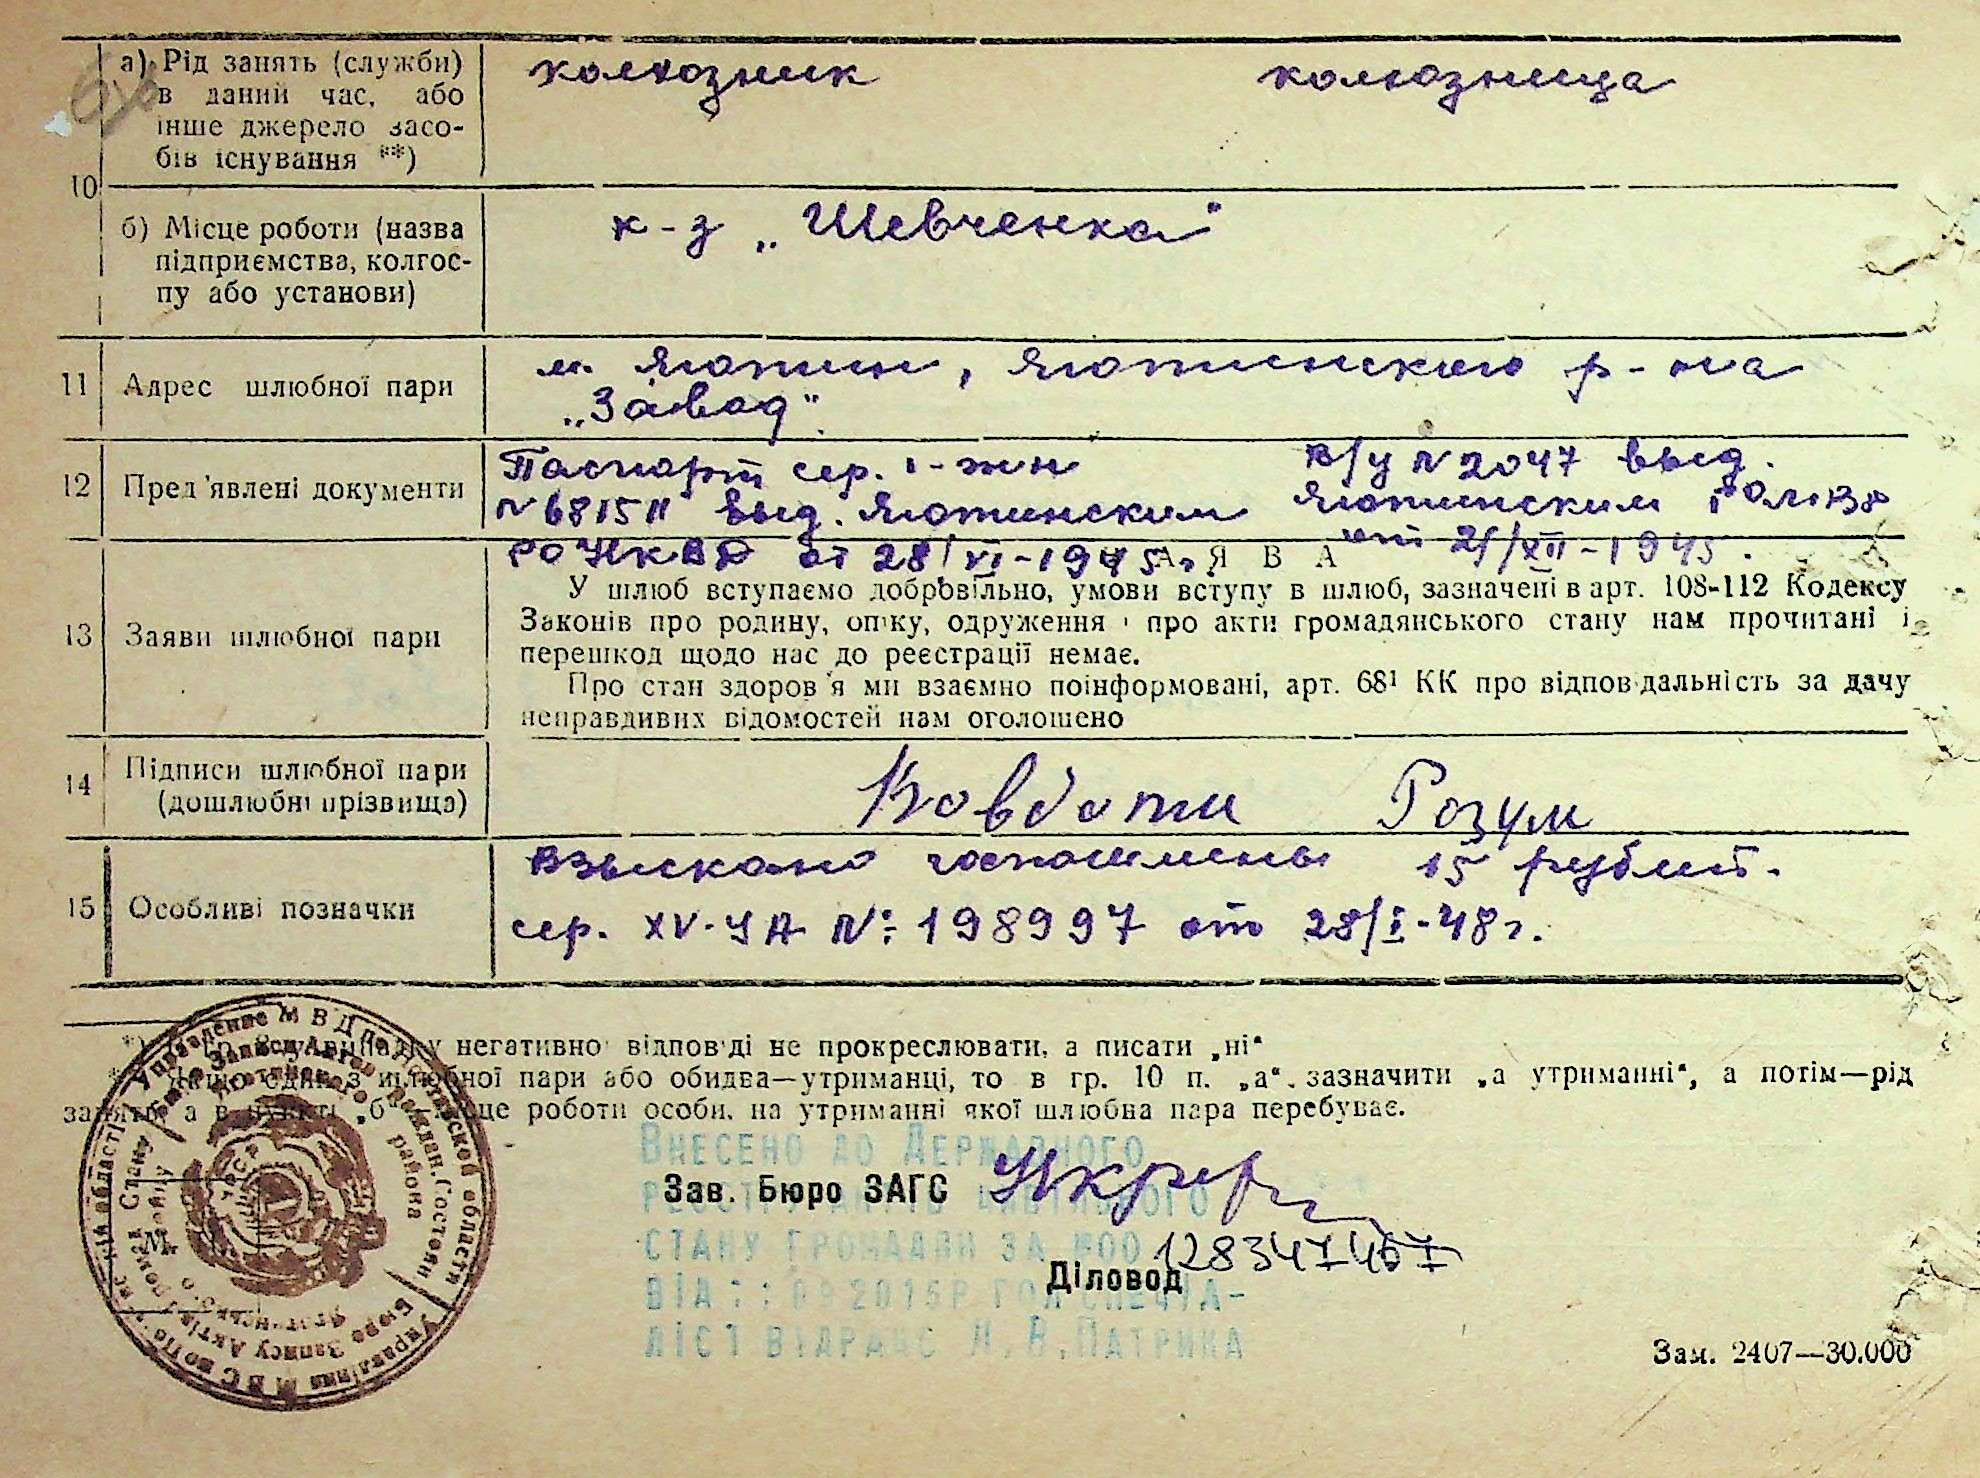 а) Рід занять (служби)
в даний час, або
інше джерело засо-
бів існування **)
колхозник колхозница
10
б) Місце роботи (назва
підприємства, колгос-
пу або установи)
к-з „Шевченка"
11 Адрес шлюбної пари
м. Яготин, Яготинского р-на
„Завод"
12 Пред'явлені документи
Паспорт сер. I-жн
№ 681511 выд. Яготинским
РО НКВД от 28/VI-1945г.
в/у № 2047 выд.
Яготинским
от 21/XII-1945.
ЗАЯВА
13 Заяви шлюбної пари
У шлюб вступаємо добровільно, умови вступу в шлюб, зазначені в арт. 108-112 Кодексу
Законів про родину, опіку, одруження і про акти громадянського стану нам прочитані і
перешкод щодо нас до реєстрації немає.
Про стан здоров'я ми взаємно поінформовані, арт. 68¹ КК про відповідальність за дачу
неправдивих відомостей нам оголошено
14 Підписи шлюбної пари
(дошлюбні прізвища)
Ковбати Розум
15 Особливі позначки
Взыскано госпошлины 15 рублей.
сер. XV-УА №: 198997 от 28/I-48г.
у негативної відповіді не прокреслювати, а писати „ні"
Якщо один з шлюбної пари або обидва—утриманці, то в гр. 10 п. „а" зазначити „а утриманні", а потім—рід
занять, а в пункті „б"—місце роботи особи, на утриманні якої шлюбна пара перебуває.
Внесено до Державного
реєстру актів цивільного
стану громадян за №00
128347467
Зав. Бюро ЗАГС
Діловод
М.
Управление МВД по Полтавской области
Бюро Записи Актов Граждан. Состоян
Яготинского района
Управління МВС по
Бюро Запису Актів
Зам. 2407—30.000